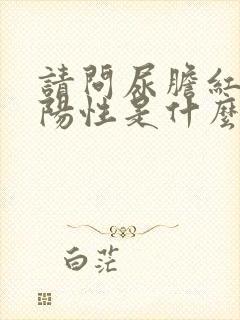 請問尿膽紅
陽性是什麼
白茫